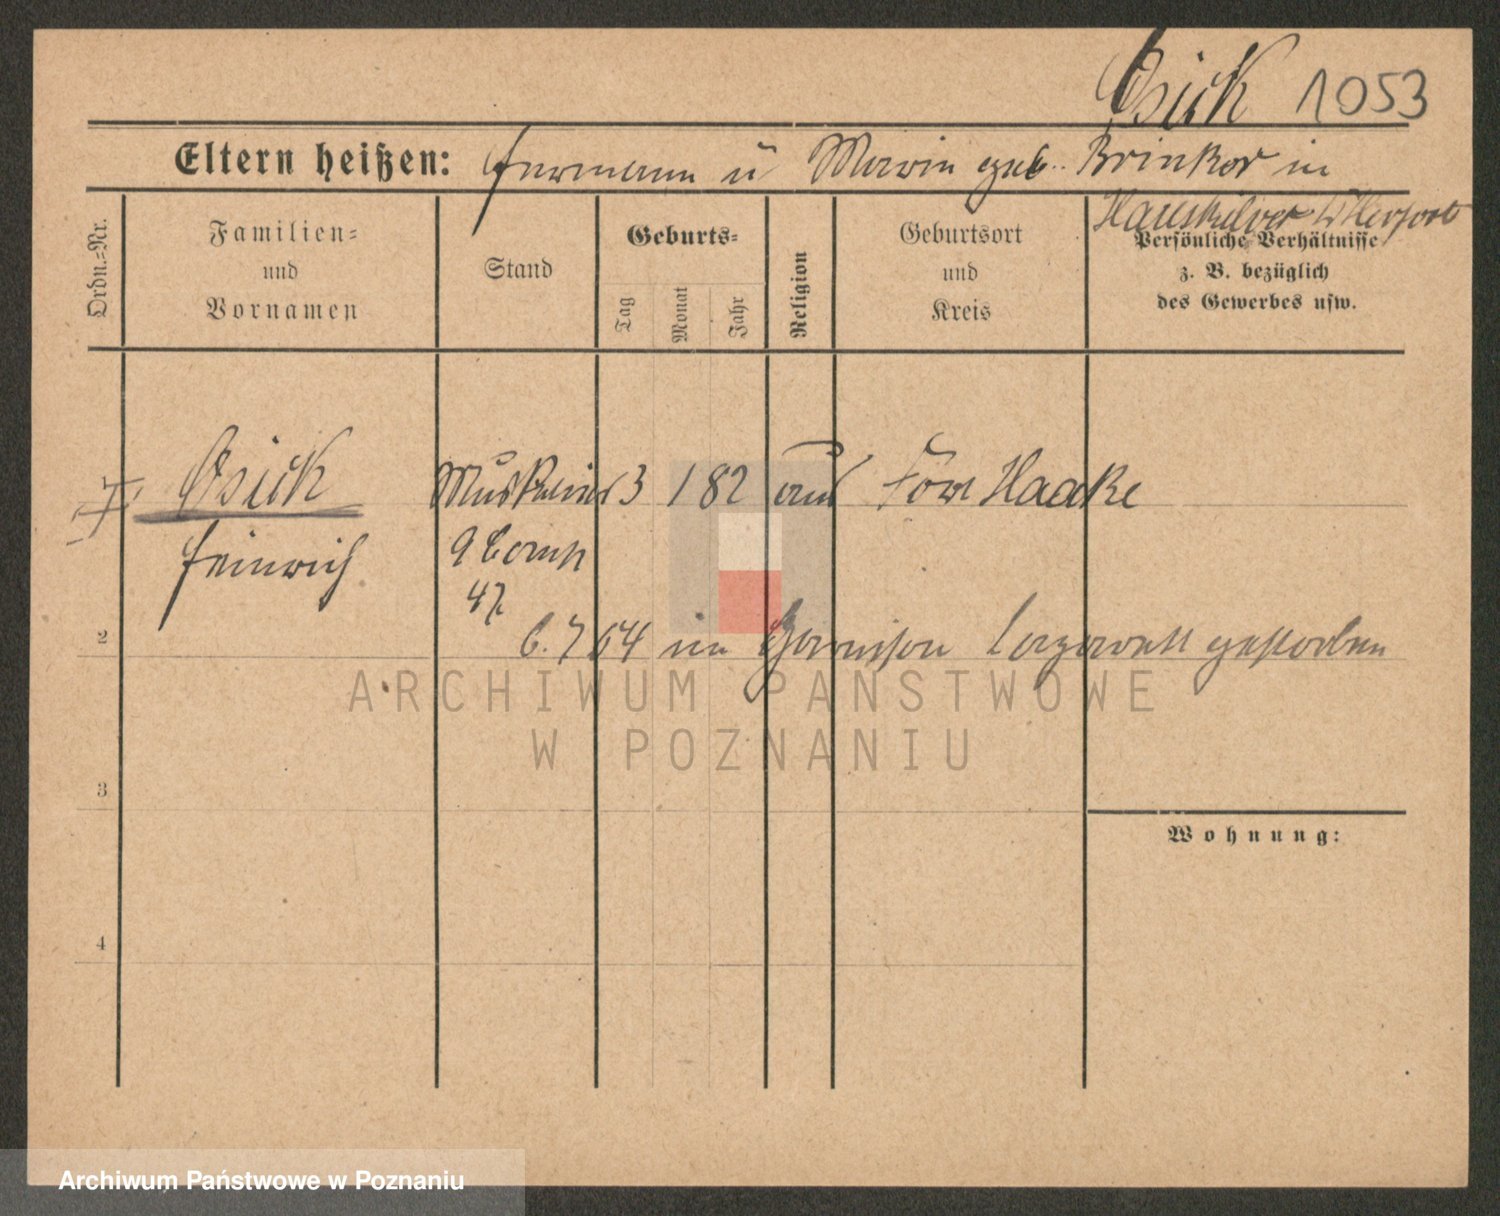 Osick 1053
Eltern heißen: Hermann u Marie geb. Brinker in
Ordn.-Nr.
Familien-
und
Vornamen
Stand
Geburts-
Tag
Monat
Jahr
Religion
Geburtsort
und
Kreis
Persönliche Verhältnisse
z. B. bezüglich
des Gewerbes usw.
Osick Musketier 3 1 82
Heinrich 9 Comp
47.
2
6. 7 04 im Garnison Lazarett gestorben
ARCHIWUM PAŃSTWOWE
W POZNANIU
3
Wohnung:
4
Archiwum Państwowe w Poznaniu